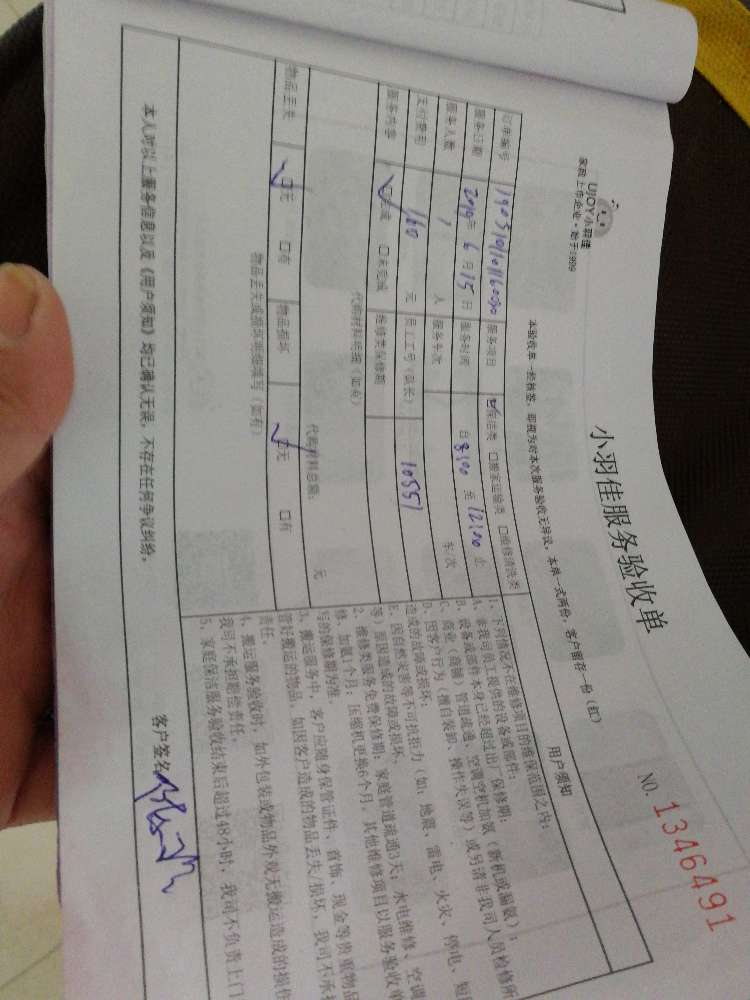 UJOY小羽佳
家政上市企业·始于1999
小羽佳服务验收单
NO: 1346491
本验收单一经核签,即视为对本次服务验收无异议,本单一式两份,客户留存一份(红)
订单编号
服务项目 ☑保洁类 □搬家运输类 □维修清洗类
服务日期 2019年6月15日 服务时间 自8:00至12:00止
服务人数 1 人 服务车次 车/次
支付费用 160 元 员工工号(队长) 10551
服务内容 ☑完成 □未完成 维修类保修期
代购材料明细(如有)
代购材料总额: 元
物品丢失 ☑无 □有 物品损坏 ☑无 □有
物品丢失或损坏详细填写(如有)
用户须知
1、下列情况不在维修项目的维保范围之内:
A、非我司员工提供的设备或部件;
B、设备或部件本身已经超过出厂保修期;
C、商业(商铺)管道疏通,空调空机加氨(新机或漏氨);
D、因客户行为(擅自装卸、操作失误等)或另请非我司人员检修所
造成的故障或损坏;
E、因自然灾害等不可抗拒力(如:地震、雷电、火灾、停电、短
等)原因造成的故障或损坏。
2、维修类服务免费保修期:家庭管道疏通3天;水电维修、空调
修、加氨1个月;压缩机更换6个月,其他维修项目以服务验收单
写的保修期为准。
3、搬运服务中,客户应随身保管证件、首饰、现金等贵重物品
管好搬运的物品,如因客户造成的物品丢失/损坏,我司不承担
责任。
4、搬运服务验收时,如外包装或物品外观无搬运造成的损伤
我司不承担赔偿责任。
5、家庭保洁服务验收结束后超过48小时,我司不负责上门
本人对以上服务信息以及《用户须知》均已确认无误,不存在任何争议纠纷。
客户签名